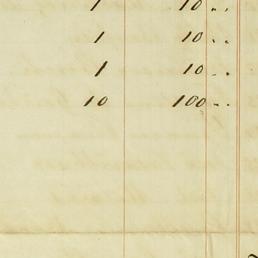 1 10 " "
1 10 " "
1 10 " "
10 100 " "